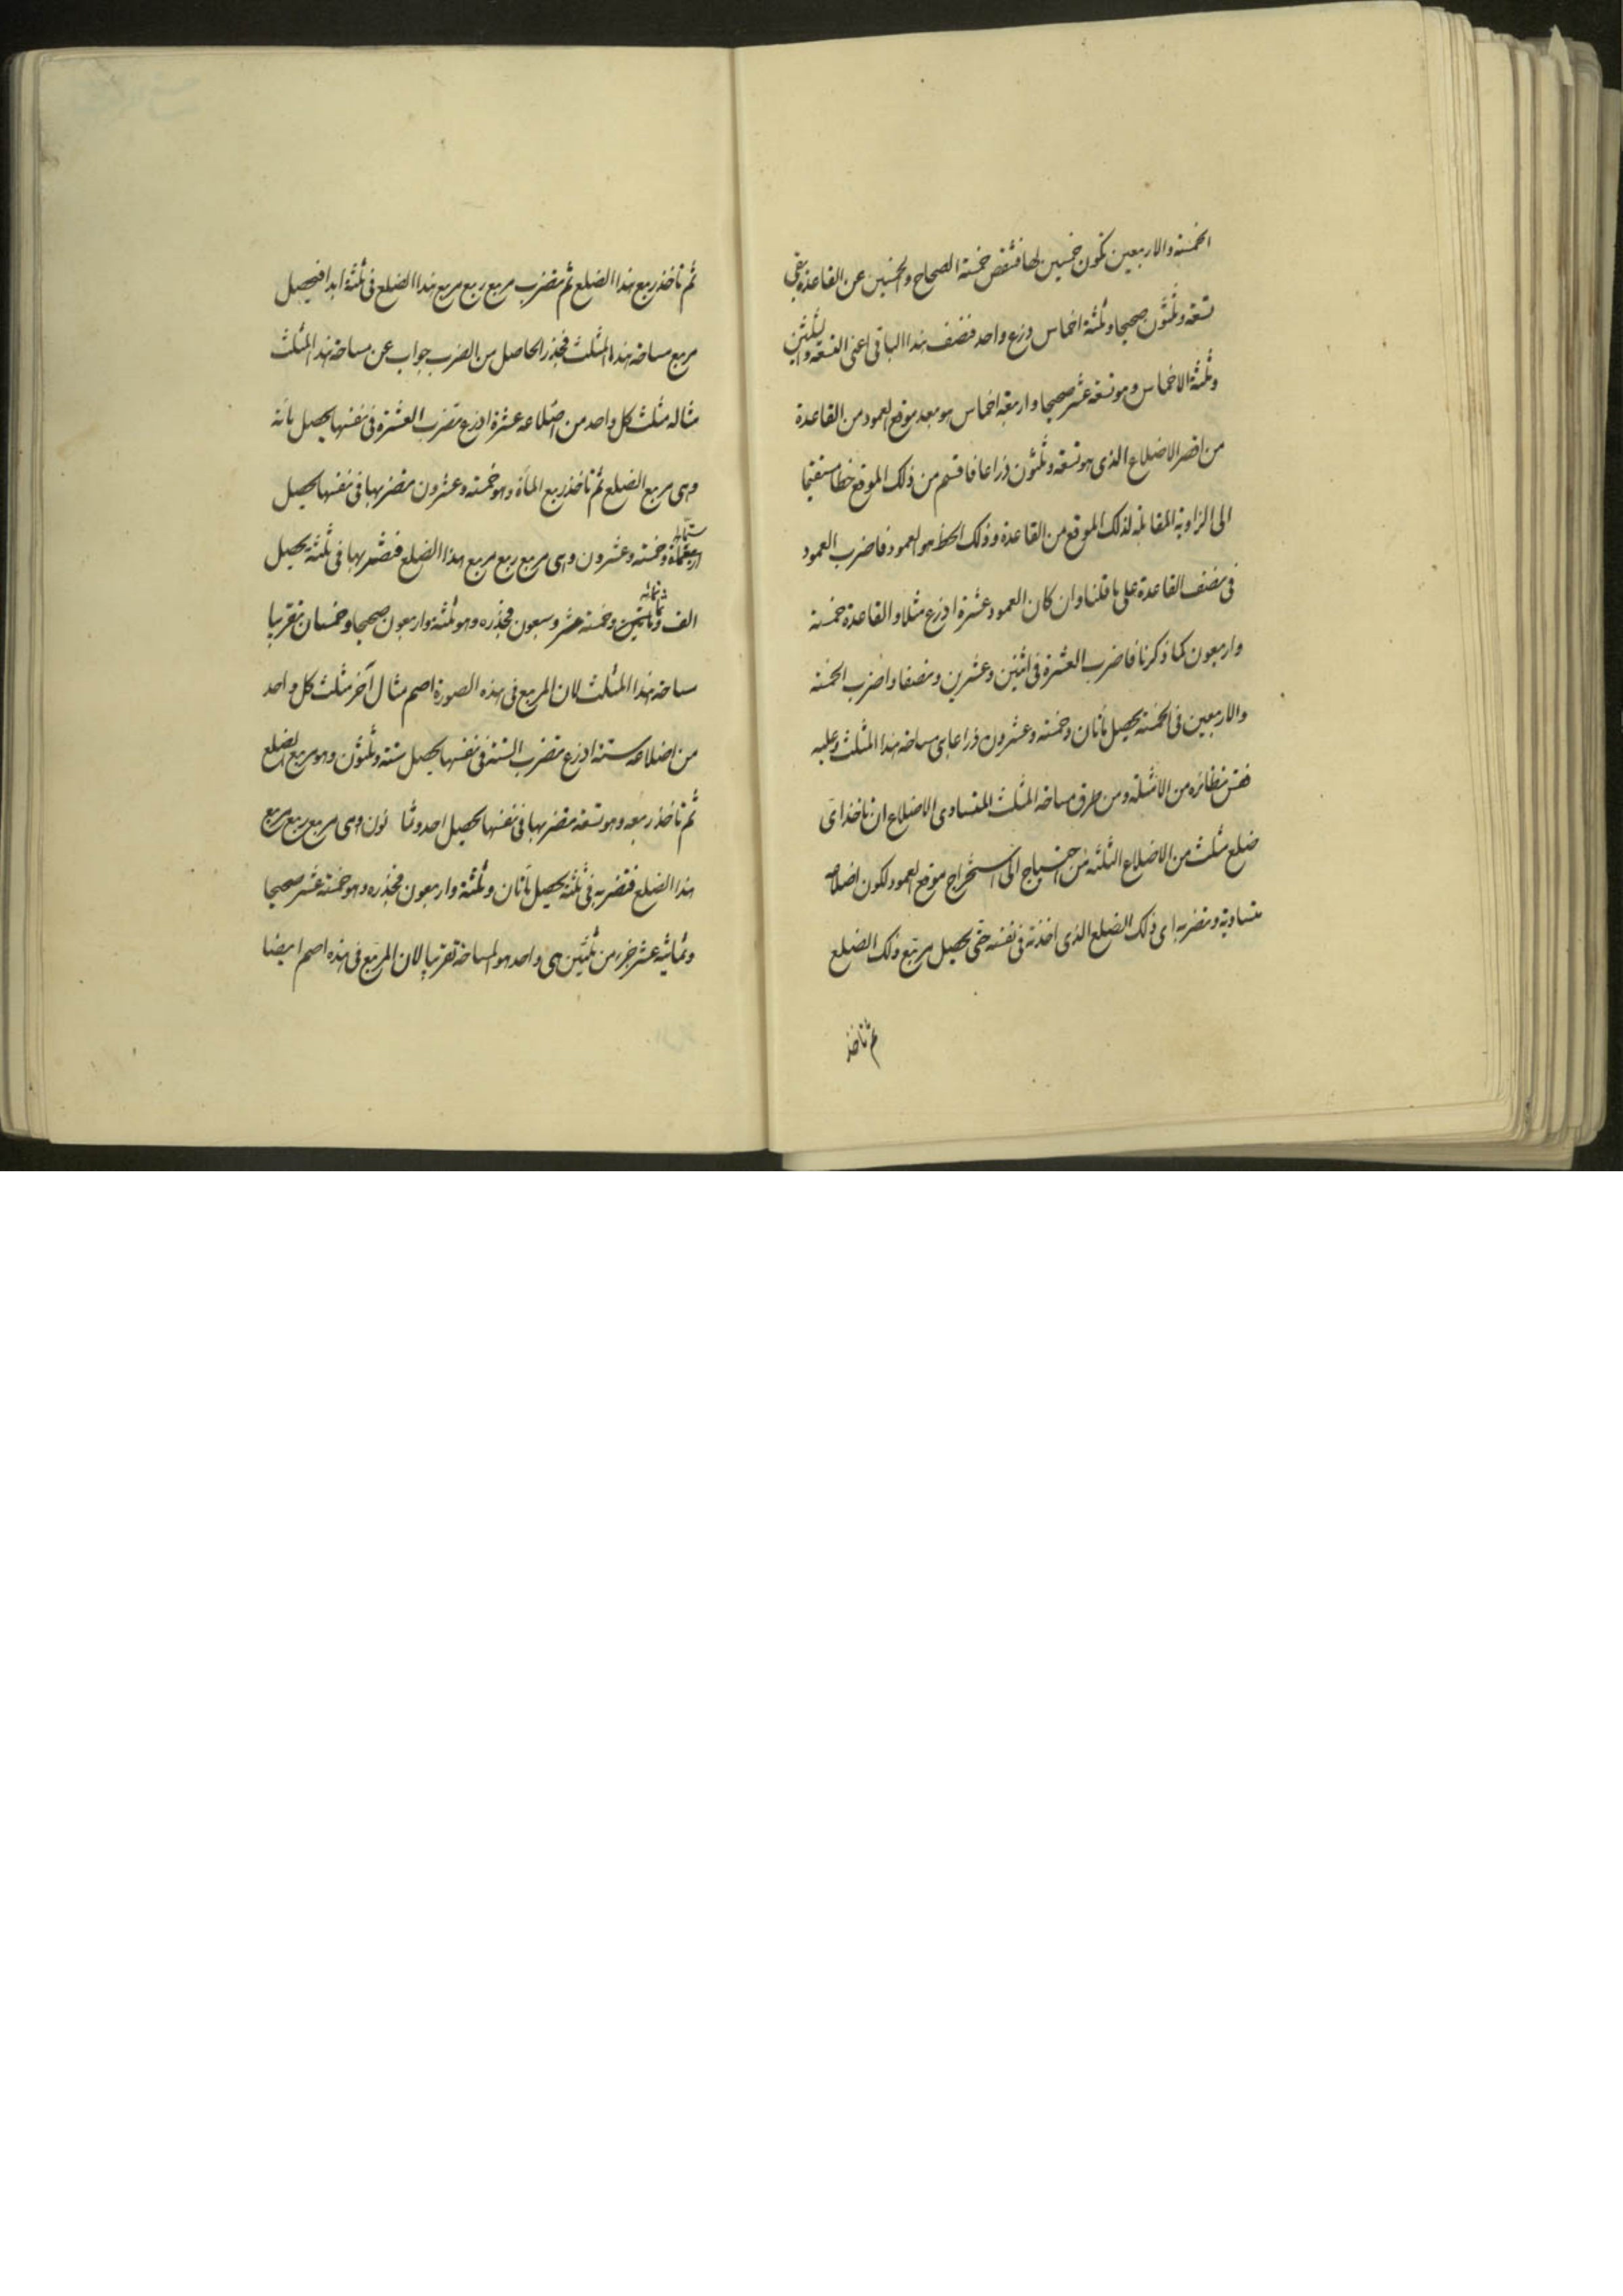 الخمسة والاربعين تكون خمسين لها فتنقص خمسة الصحاح والخمسين عن القاعدة يبقى
تسعة وثلثون صحيحا وثلثة اخماس ذرع واحد فنصف هذا الباقى اعنى التسعة والثلثين
وثلثة الاخماس وهو تسعة عشر صحيحا واربعة اخماس هو بعد موقع العمود من القاعدة
من اقصر الاضلاع الذى هو تسعة وثلثون ذراعا فاقسم من ذلك الموقع خطا مستقيما
الى الزاوية المقابلة لذلك الموقع من القاعدة وذلك الخط هو العمود فاضرب العمود
فى نصف القاعدة على ما قلنا وان كان العمود عشرة اذرع مثلا والقاعدة خمسة
واربعون كما ذكرنا فاضرب العشرة فى اثنين وعشرين ونصفا واضرب الخمسة
والاربعين فى الخمسة يحصل مأتان وخمسة وعشرون ذراعا هى مساحة هذا المثلث وعليه
فقس نظائره من الامثلة ومن طرق مساحة المثلث المتساوى الاضلاع ان تاخذ اى
ضلع مثلث من الاضلاع الثلثة من احتياج الى استخراج موقع العمود لكون اضلاعه
متساوية وتضربه اى ذلك الضلع الذى اخذته فى نفسه حتى يحصل مربع ذلك الضلع
ثم تاخذ
ثم تاخذ ربع هذا الضلع ثم تضرب مربع ربع مربع هذا الضلع فى ثلثة ابدا فيحصل
مربع مساحة هذا المثلث فجذر الحاصل من الضرب جواب عن مساحة هذا المثلث
مثاله مثلث كل واحد من اضلاعه عشرة اذرع تضرب العشرة فى نفسها يحصل مأئة
وهى مربع الضلع ثم تاخذ ربع المأة وهو خمسة وعشرون تضربها فى نفسها يحصل
ستمائة
اربعمأة وخمسة وعشرون وهى مربع ربع مربع هذا الضلع فتضربها فى ثلثة يحصل
ثمانمائة
الف وخمسة عشر وسبعون فجذره وهو ثلثة واربعون صحيحا وخمسان تقريبا
مساحة هذا المثلث لان المربع فى هذه الصورة اصم مثال آخر مثلث كل واحد
من اضلاعه ستة اذرع تضرب الستة فى نفسها يحصل ستة وثلثون وهو مربع الضلع
ثم تاخذ ربعه وهو تسعة تضربها فى نفسها يحصل احد وثما نون وهى مربع ربع مربع
هذا الضلع فتضربه فى ثلثة يحصل مأتان وثلثة واربعون فجذره وهو خمسة عشر صحيحا
وثمانية عشر جزء من ثلثين هى واحد هو المساحة تقريبا لان المربع فى هذه اصم ايضا